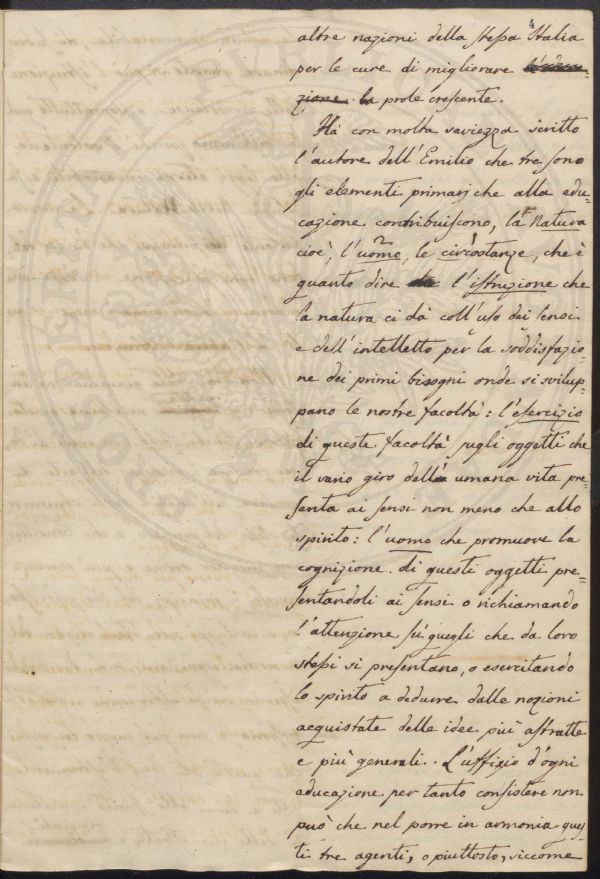 4
altre nazioni della stessa Italia
per le cure di migliorare
zione la prole crescente.
Ha con molta saviezza scritto
l'autore dell'Emilio che tre sono
gli elementi primarj che alla edu=
cazione contribuiscono, la natura
cioè, l'uomo, le circostanze, che è
quanto dire l'istruzione che
la natura ci dà coll'uso dei sensi
e dell'intelletto per la soddisfazio=
ne dei primi bisogni onde si svilup=
pano le nostre facoltà: l'esercizio
di queste facoltà sugli oggetti che
il vario giro della umana vita pre=
senta ai sensi non meno che allo
spirito: l'uomo che promuove la
cognizione di questi oggetti pre=
sentandoli ai sensi o richiamando
l'attenzione su quegli che da loro
stessi si presentano, o esercitando
lo spirito a dedurre dalle nozioni
acquistate delle idee più astratte
e più generali. L'uffizio d'ogni
educazione per tanto consistere non
può che nel porre in armonia ques=
ti tre agenti, o piuttosto, siccome
PROSPERITATI